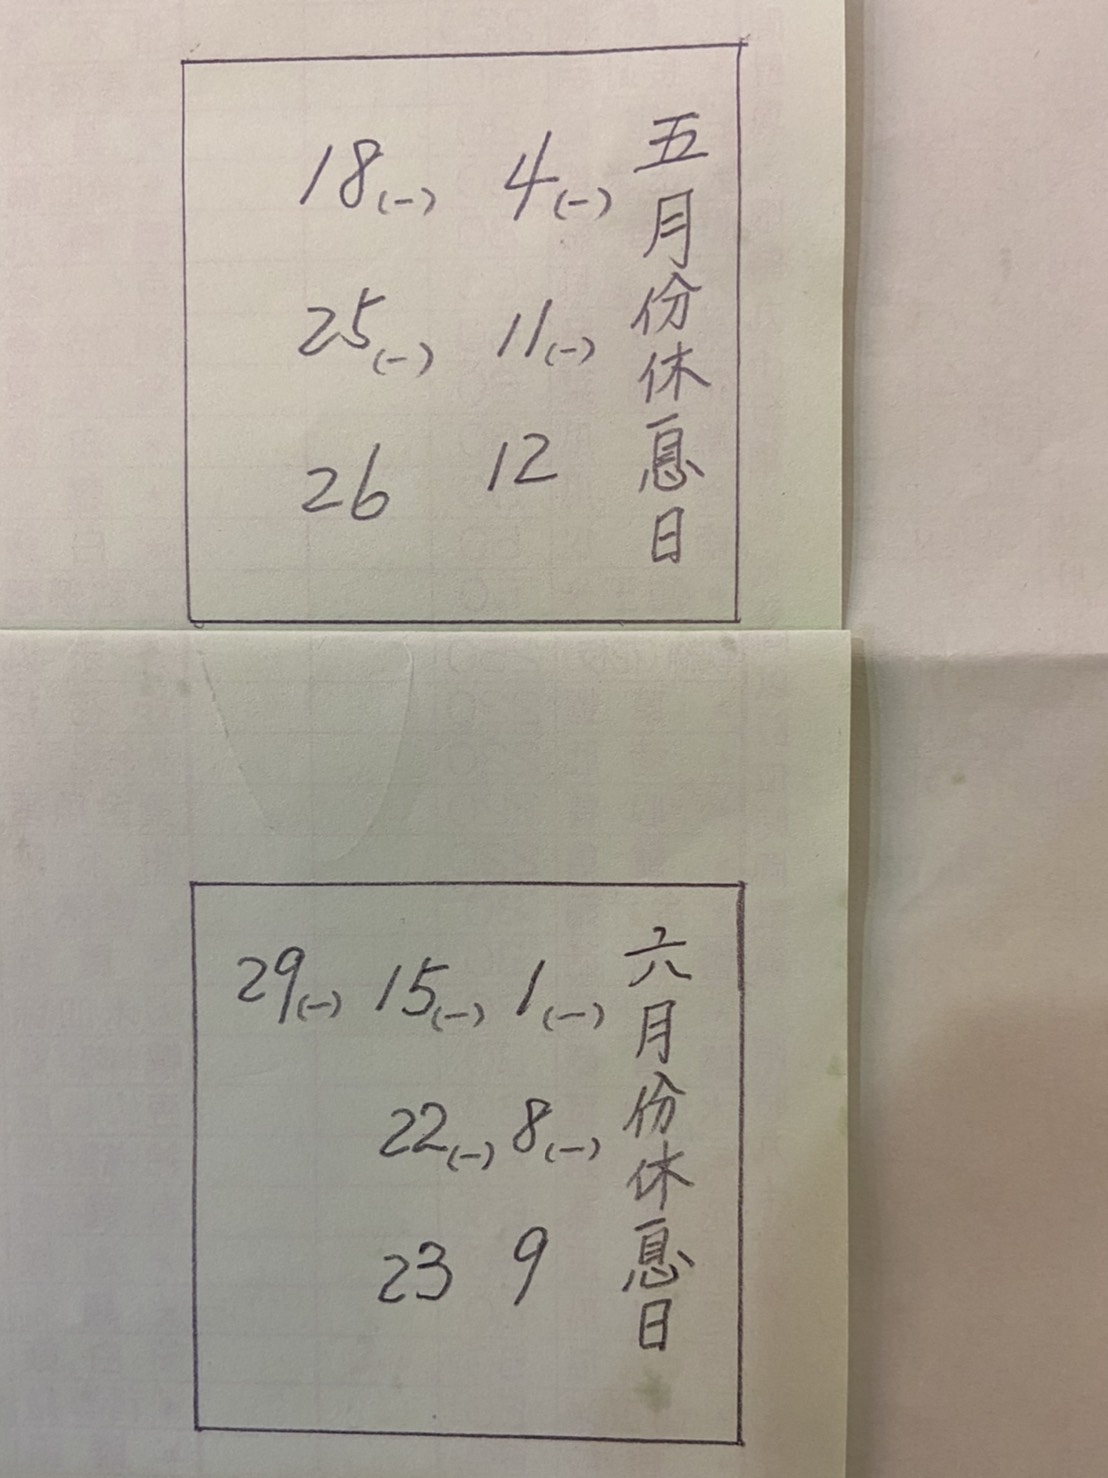 五月份休息日
4(一)
11(一)
12
18(一)
25(一)
26
六月份休息日
1(一)
8(一)
9
15(一)
22(一)
23
29(一)